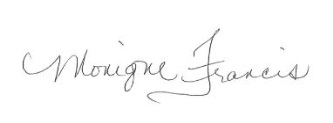 Monique Francis